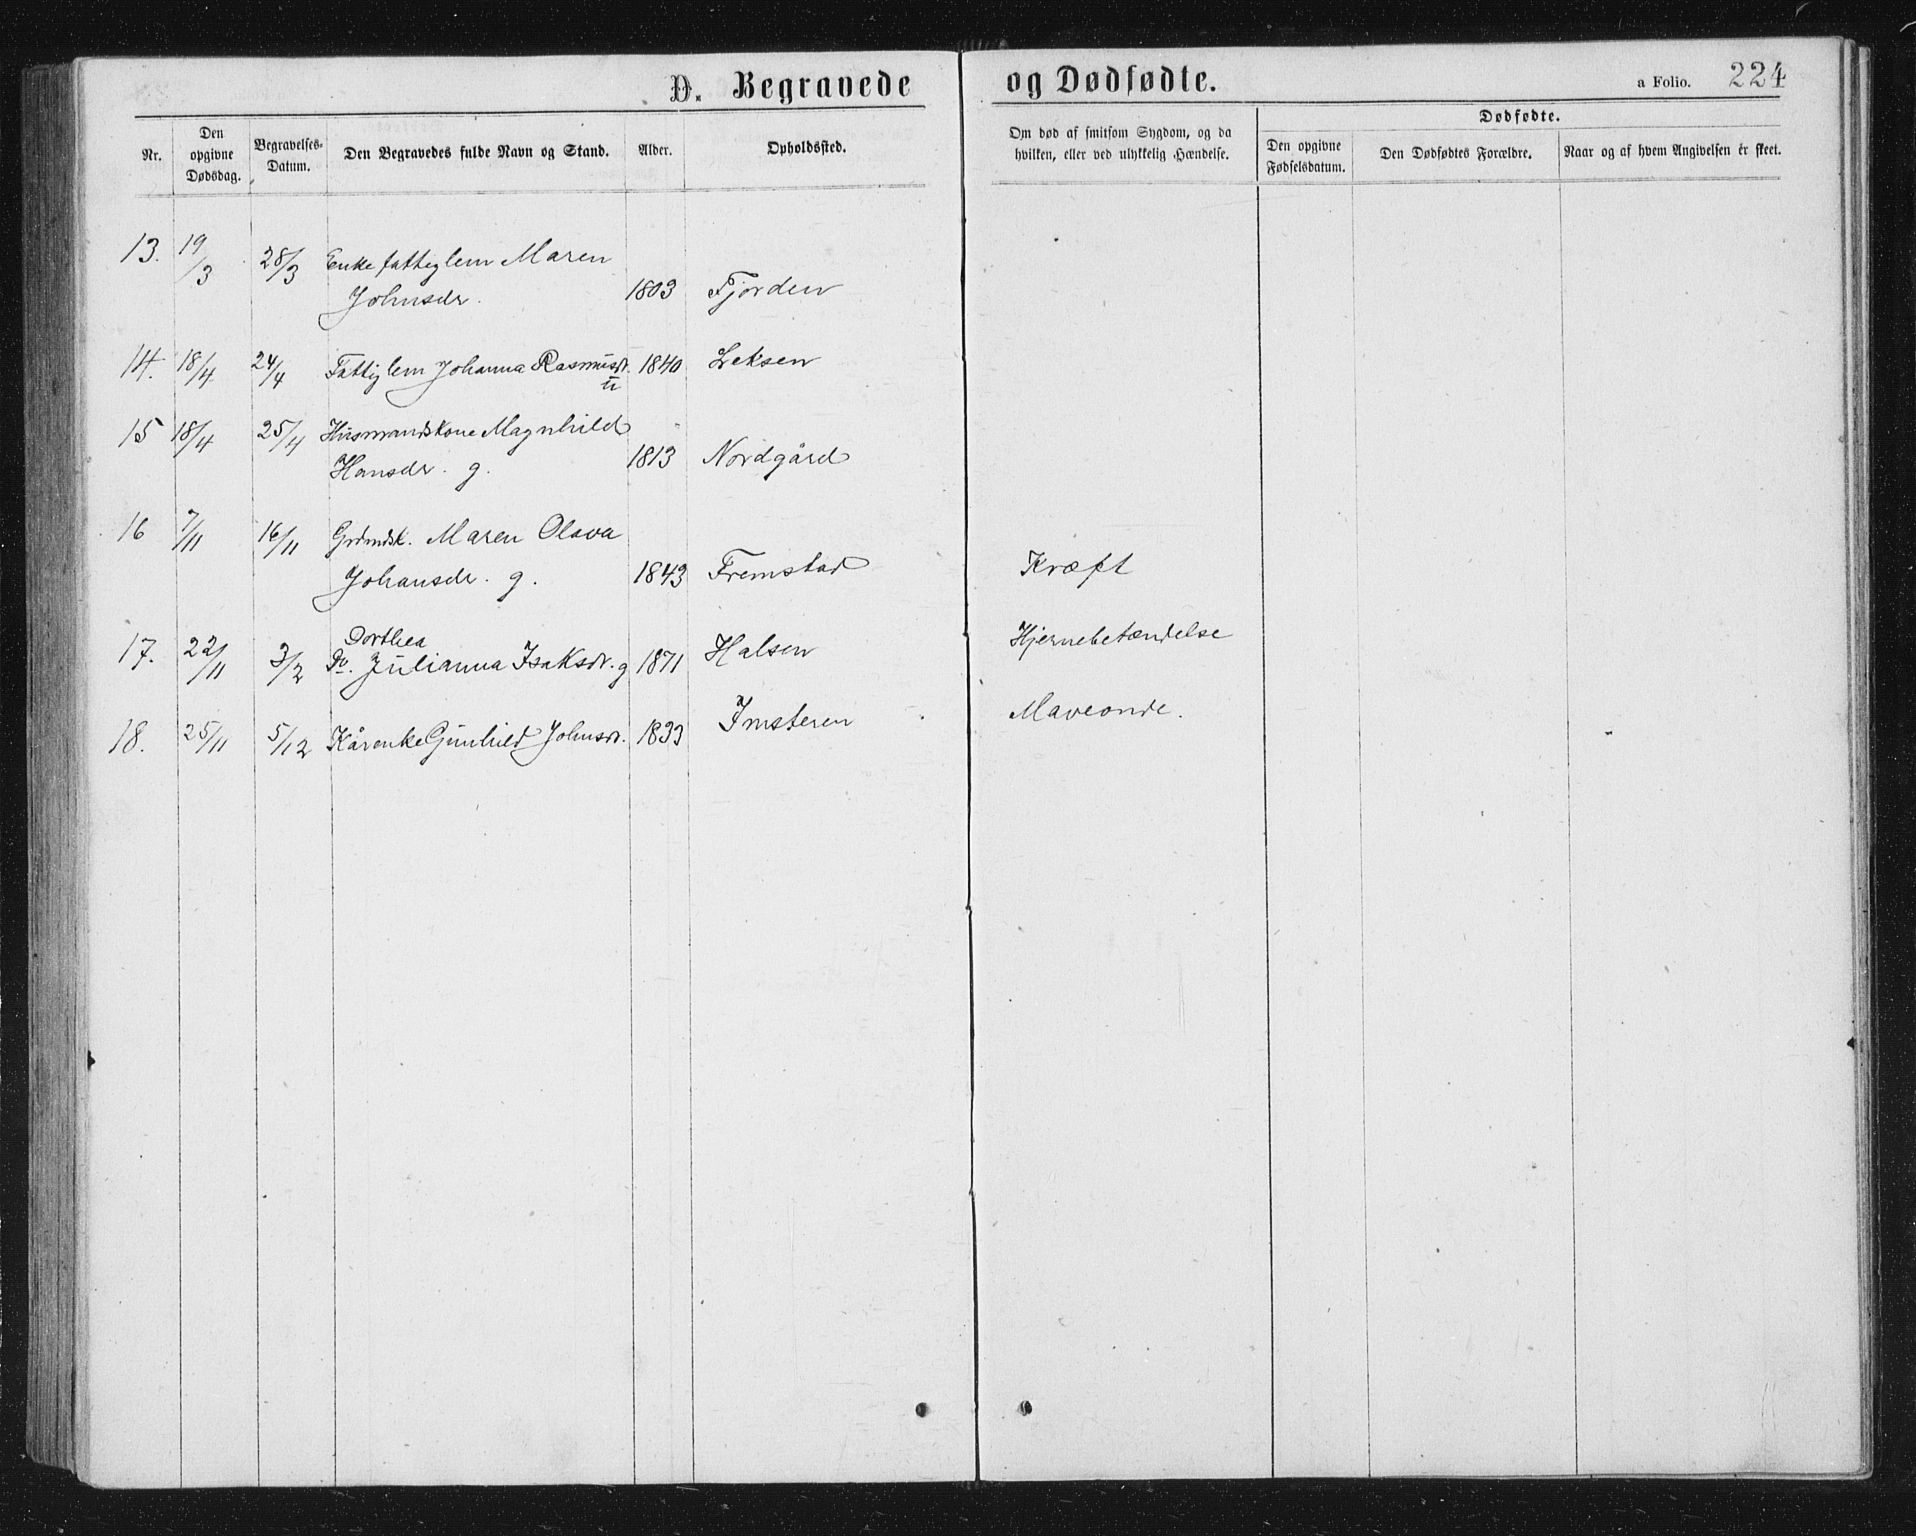 D. Begravede og Dødfødte.
a Folio. 224
Nr.
Den opgivne Dødsdag.
Begravelses-Datum.
Den Begravedes fulde Navn og Stand.
Alder.
Opholdssted.
Om død af smitsom Sygdom, og da hvilken, eller ved ulykkelig Hændelse.
Dødfødte.
Den opgivne Fødselsdatum.
Den Dødfødtes Forældre.
Naar og af hvem Angivelsen er skeet.
13. 19/3 28/3 Enke fattiglem Maren
Johnsdr. 1803 Fjorden
14. 18/4 24/4 Fattiglem Johanna Rasmusdr. 1840 Leksen
u
15 18/4 25/4 Husmandskone Magnhild
Hansdr. g. 1813 Nordgård
16 7/11 16/11 Grdmdsk. Maren Olava
Johansdr. g. 1843 Fremstad Kræft
Dorthea
17. 22/11 3/2 Do. Julianna Isaksdr. g 1871 Halsen Hjernebetændelse
18. 25/11 5/12 Kårenke Gunhild Johnsdr. 1833 Imsteren Maveonde.